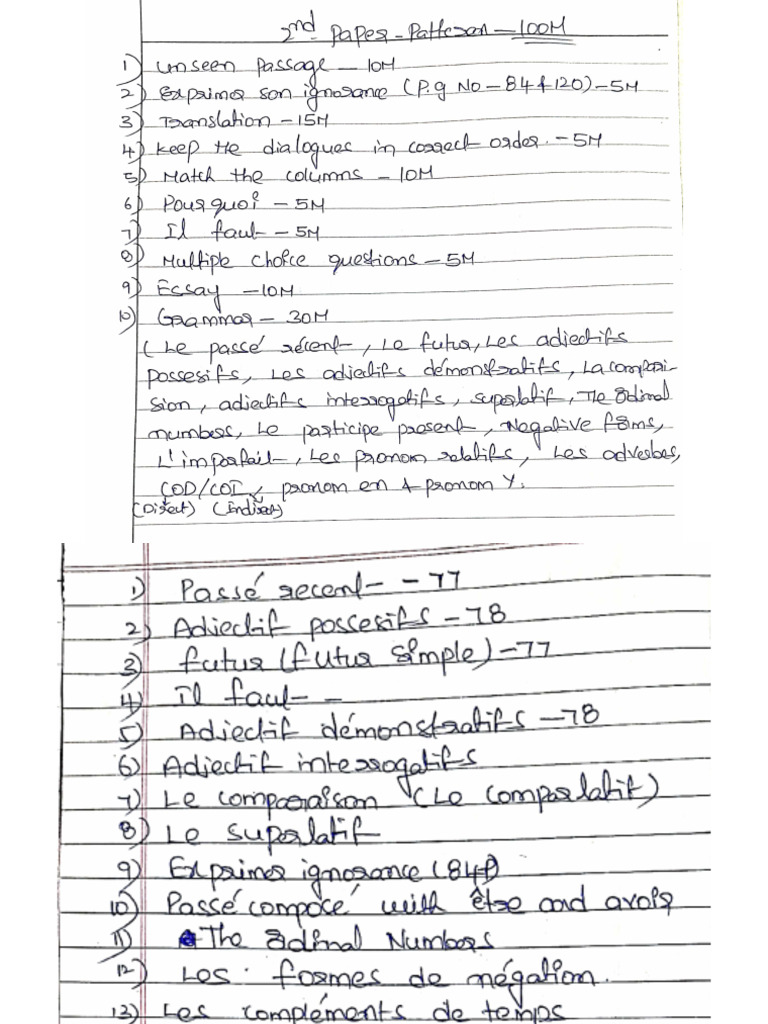 2nd Paper - Pattern - 100M
1) Unseen Passage - 10M
2) Exprimer son ignorance (P.g No - 84 & 120) - 5M
3) Translation - 15M
4) Keep the dialogues in correct order. - 5M
5) Match the columns - 10M
6) Pourquoi - 5M
7) Il faut - 5M
8) Multiple choice questions - 5M
9) Essay - 10M
10) Grammar - 30M
( Le passé récent, Le futur, Les adjectifs
possesifs, Les adjectifs démonstratifs, La compari-
sion, adjectifs interrogatifs, superlatif, The ordinal
numbers, Le participe present, Negative forms,
L'imparfait, Les pronom relatifs, Les adverbes,
COD/COI, pronom en & pronom Y.
(Direct) (Indirect)
1) Passé recent - - 77
2) Adjectif possesifs - 78
3) futur (futur simple) - 77
4) Il faut - -
5) Adjectif démonstratifs - 78
6) Adjectif interrogatifs
7) Le comparaison (Le comparlatif)
8) Le superlatif
9) Exprimer ignorance (84)
10) Passé composé with être and avoir
11) The ordinal Numbers
12) Les formes de négation.
13) Les compléments de temps